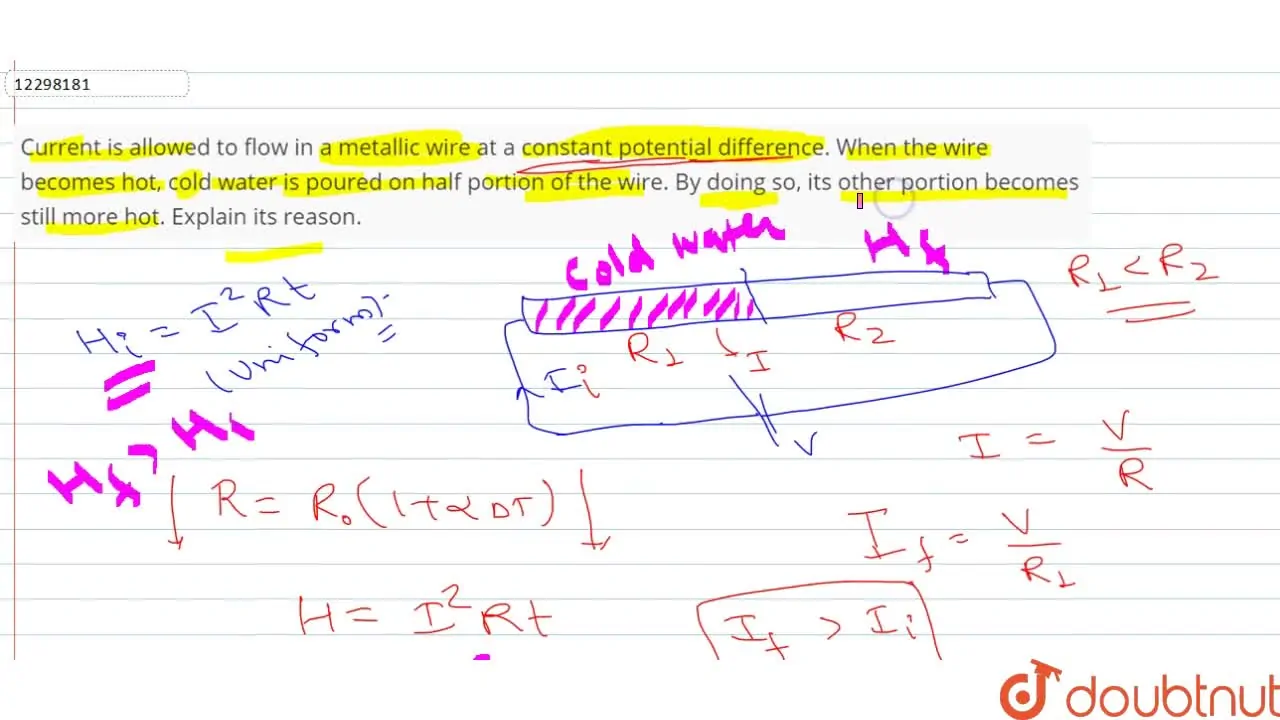 12298181
Current is allowed to flow in a metallic wire at a constant potential difference. When the wire
becomes hot, cold water is poured on half portion of the wire. By doing so, its other portion becomes
still more hot. Explain its reason.
Cold water
Hf
R1 < R2
Hi = I²Rt
(Uniform)
R1
I
R2
Ii
V
Hf > Hi
I = V/R
R = R0 (1+αΔT)
If = V/R1
H = I²Rt
If > Ii
doubtnut